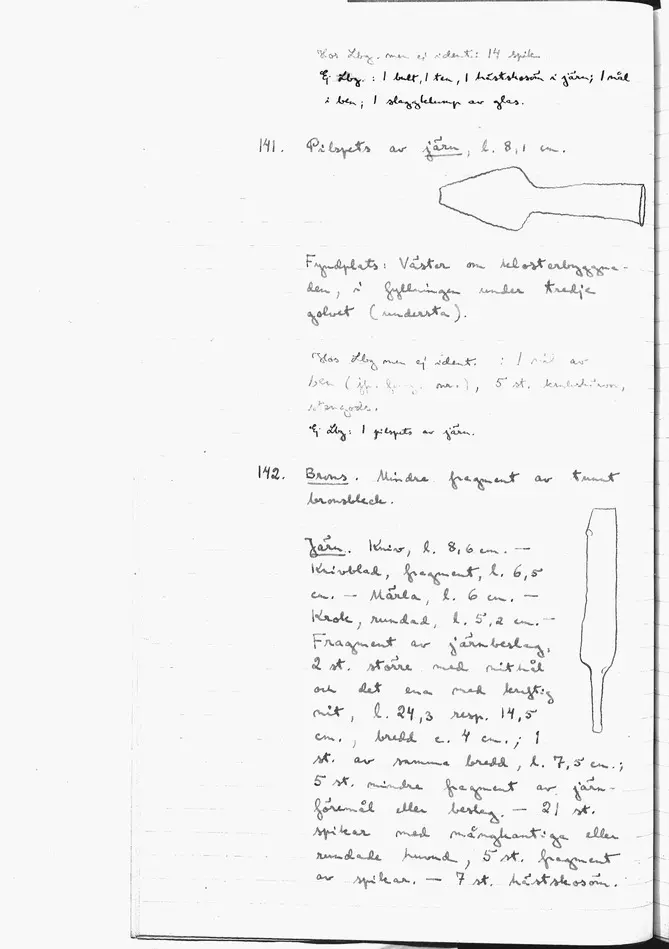 Hos Lbg. men ej ident.: 14 spik
Ej Lbg.: 1 bult, 1 ten, 1 hästskosöm i järn; 1 nål
i ben; 1 slaggklump av glas.
141. Pilspets av järn, l. 8,1 cm.
Fyndplats: Väster om klosterbyggna-
den, i fyllningen under tredje
golvet (understa).
Hos Lbg men ej ident. : 1 nål av
ben ( nr.), 5 st.
stengods.
Ej Lbg: 1 pilspets av järn.
142. Brons. Mindre fragment av tunt
bronsbleck.
Järn. Kniv, l. 8,6 cm. —
Knivblad, fragment, l. 6,5
cm. — Märla, l. 6 cm. —
Krok, rundad, l. 5,2 cm. —
Fragment av järnbeslag,
2 st. större med nithål
och det ena med kraftig
nit, l. 24,3 resp. 14,5
cm., bredd c. 4 cm.; 1
st. av samma bredd, l. 7,5 cm.;
5 st. mindre fragment av järn-
föremål eller beslag. — 21 st.
spikar med mångkantiga eller
rundade huvud, 5 st. fragment
av spikar. — 7 st. hästskosöm.